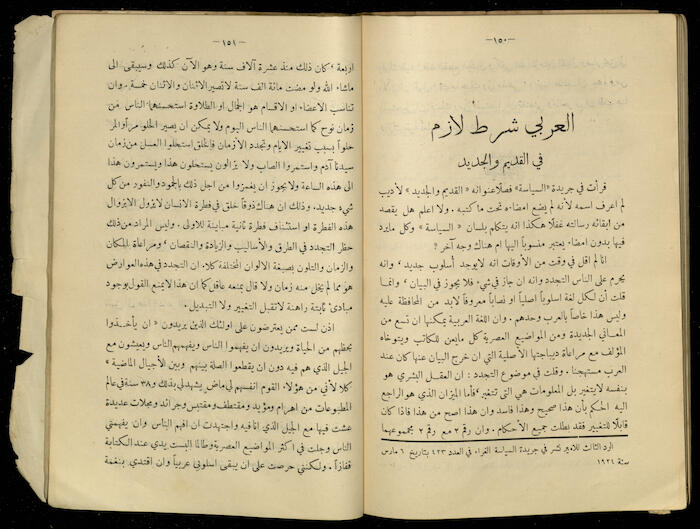 —١٥٠—
العربي شرط لازم
في القديم والجديد
قرأت في جريدة «السياسة» فصلاً عنوانه «القديم والجديد» لأديب
لم اعرف اسمه لأنه لم يضع امضاءه تحت ما كتبه . ولا اعلم هل بقصد
من ابقائه رسالته غفلاً هكذا انه يتكلم بلسان «السياسة» وكل ما يرد
فيها بدون امضاء يعتبر منسوباً اليها ام هناك وجه آخر ؟
انا لم اقل في وقت من الأوقات انه لايوجد أسلوب جديد ، وانه
يحرم على الناس التجدد وانه ان جاز في شيء فلا يجوز في البيان ، وانما
قلت أن لكل لغة اسلوباً اصلياً او نصاباً معروفاً لابد من المحافظة عليه
وليس هذا خاصاً بالعرب وحدهم . وان اللغة العربية يمكنها ان تسع من
المعاني الجديدة ومن المواضيع العصرية كل مايعن للكاتب ويتوخاه
المؤلف مع مراعاة ديباجتها الأصلية التي ان خرج البيان عنها كان عند
العرب مستهجناً . وقلت في موضوع التجدد : ان العقل البشري هو
بنفسه لايتغير بل المعلومات هي التي تتغير ، فأما الميزان الذي هو الراجع
اليه الحكم بأن هذا صحيح وهذا فاسد وان هذا اصح من هذا فاذا كان
قابلاً للتغيير فقد بطلت جميع الأحكام . وان رقم ٢ مع رقم ٢ مجموعهما
الرد الثالث للامير نشر في جريدة السياسة الغراء في العدد ٤٢٣ بتاريخ ٦ مارس
سنة ١٩٢٤
—١٥١—
اربعة ، كان ذلك منذ عشرة آلاف سنة وهو الآن كذلك وسيبقى الى
ماشاء الله ولو مضت مائة الف سنة لاتصير الاثنان والاثنان خمسة . وان
تناسب الاعضاء او الاقسام هو الجمال او الطلاوة استحسنها الناس من
زمان نوح كما استحسنها الناس اليوم ولا يمكن ان يصير الحلو مراً والمر
حلواً بسبب تغيير الايام وتجدد الأزمان فالخلق استحلوا العسل من زمان
سيدنا آدم واستمروا الصاب ولا يزالون يستحلون هذا ويستمرون هذا
الى هذه الساعة ولا يجوز ان يغمزوا من اجل ذلك بالجمود والنفور من كل
شيء جديد . وذلك ان هناك ذوقاً خلق في فطرة الانسان لايزول الا بزوال
هذه الفطرة او استئناف فطرة ثانية مباينة للاولى . وليس المراد من ذلك
حظر التجدد في الطرق والأساليب والزيادة والنقصان ، ومراعاة المكان
والزمان والتلون بصبغة الالوان المختلفة كلا . ان التجدد في هذه العوارض
هو مما لم يخل منه زمان ولا قال بمنعه عاقل كما ان هذا لايمنع القول بوجود
مبادئ ثابتة راهنة لا تقبل التغيير ولا التبديل .
اذن لست ممن يعترضون على اولئك الذين يريدون « ان يأخذوا
بحظهم من الحياة ويريدون ان يفهموا الناس ويفهمهم الناس ويعيشون مع
الجيل الذي هم فيه دون ان يقطعوا الصلة بينهم وبين الأجيال الماضية »
كلا لأني من هؤلاء القوم انفسهم لي ماض يشهد لي بذلك و ٣٨ سنة في عالم
المطبوعات من اهرام ومؤيد ومقتطف ومقتبس وجرائد ومجلات عديدة
عشت فيها مع الجيل الذي انا فيه واجتهدت ان افهم الناس وان يفهمني
الناس وجلت في اكثر المواضيع العصرية وطالما لبست يدي عند الكتابة
قفازاً . ولكنني حرصت على ان يبقى اسلوبي عربياً وان اقتدي بنغمة